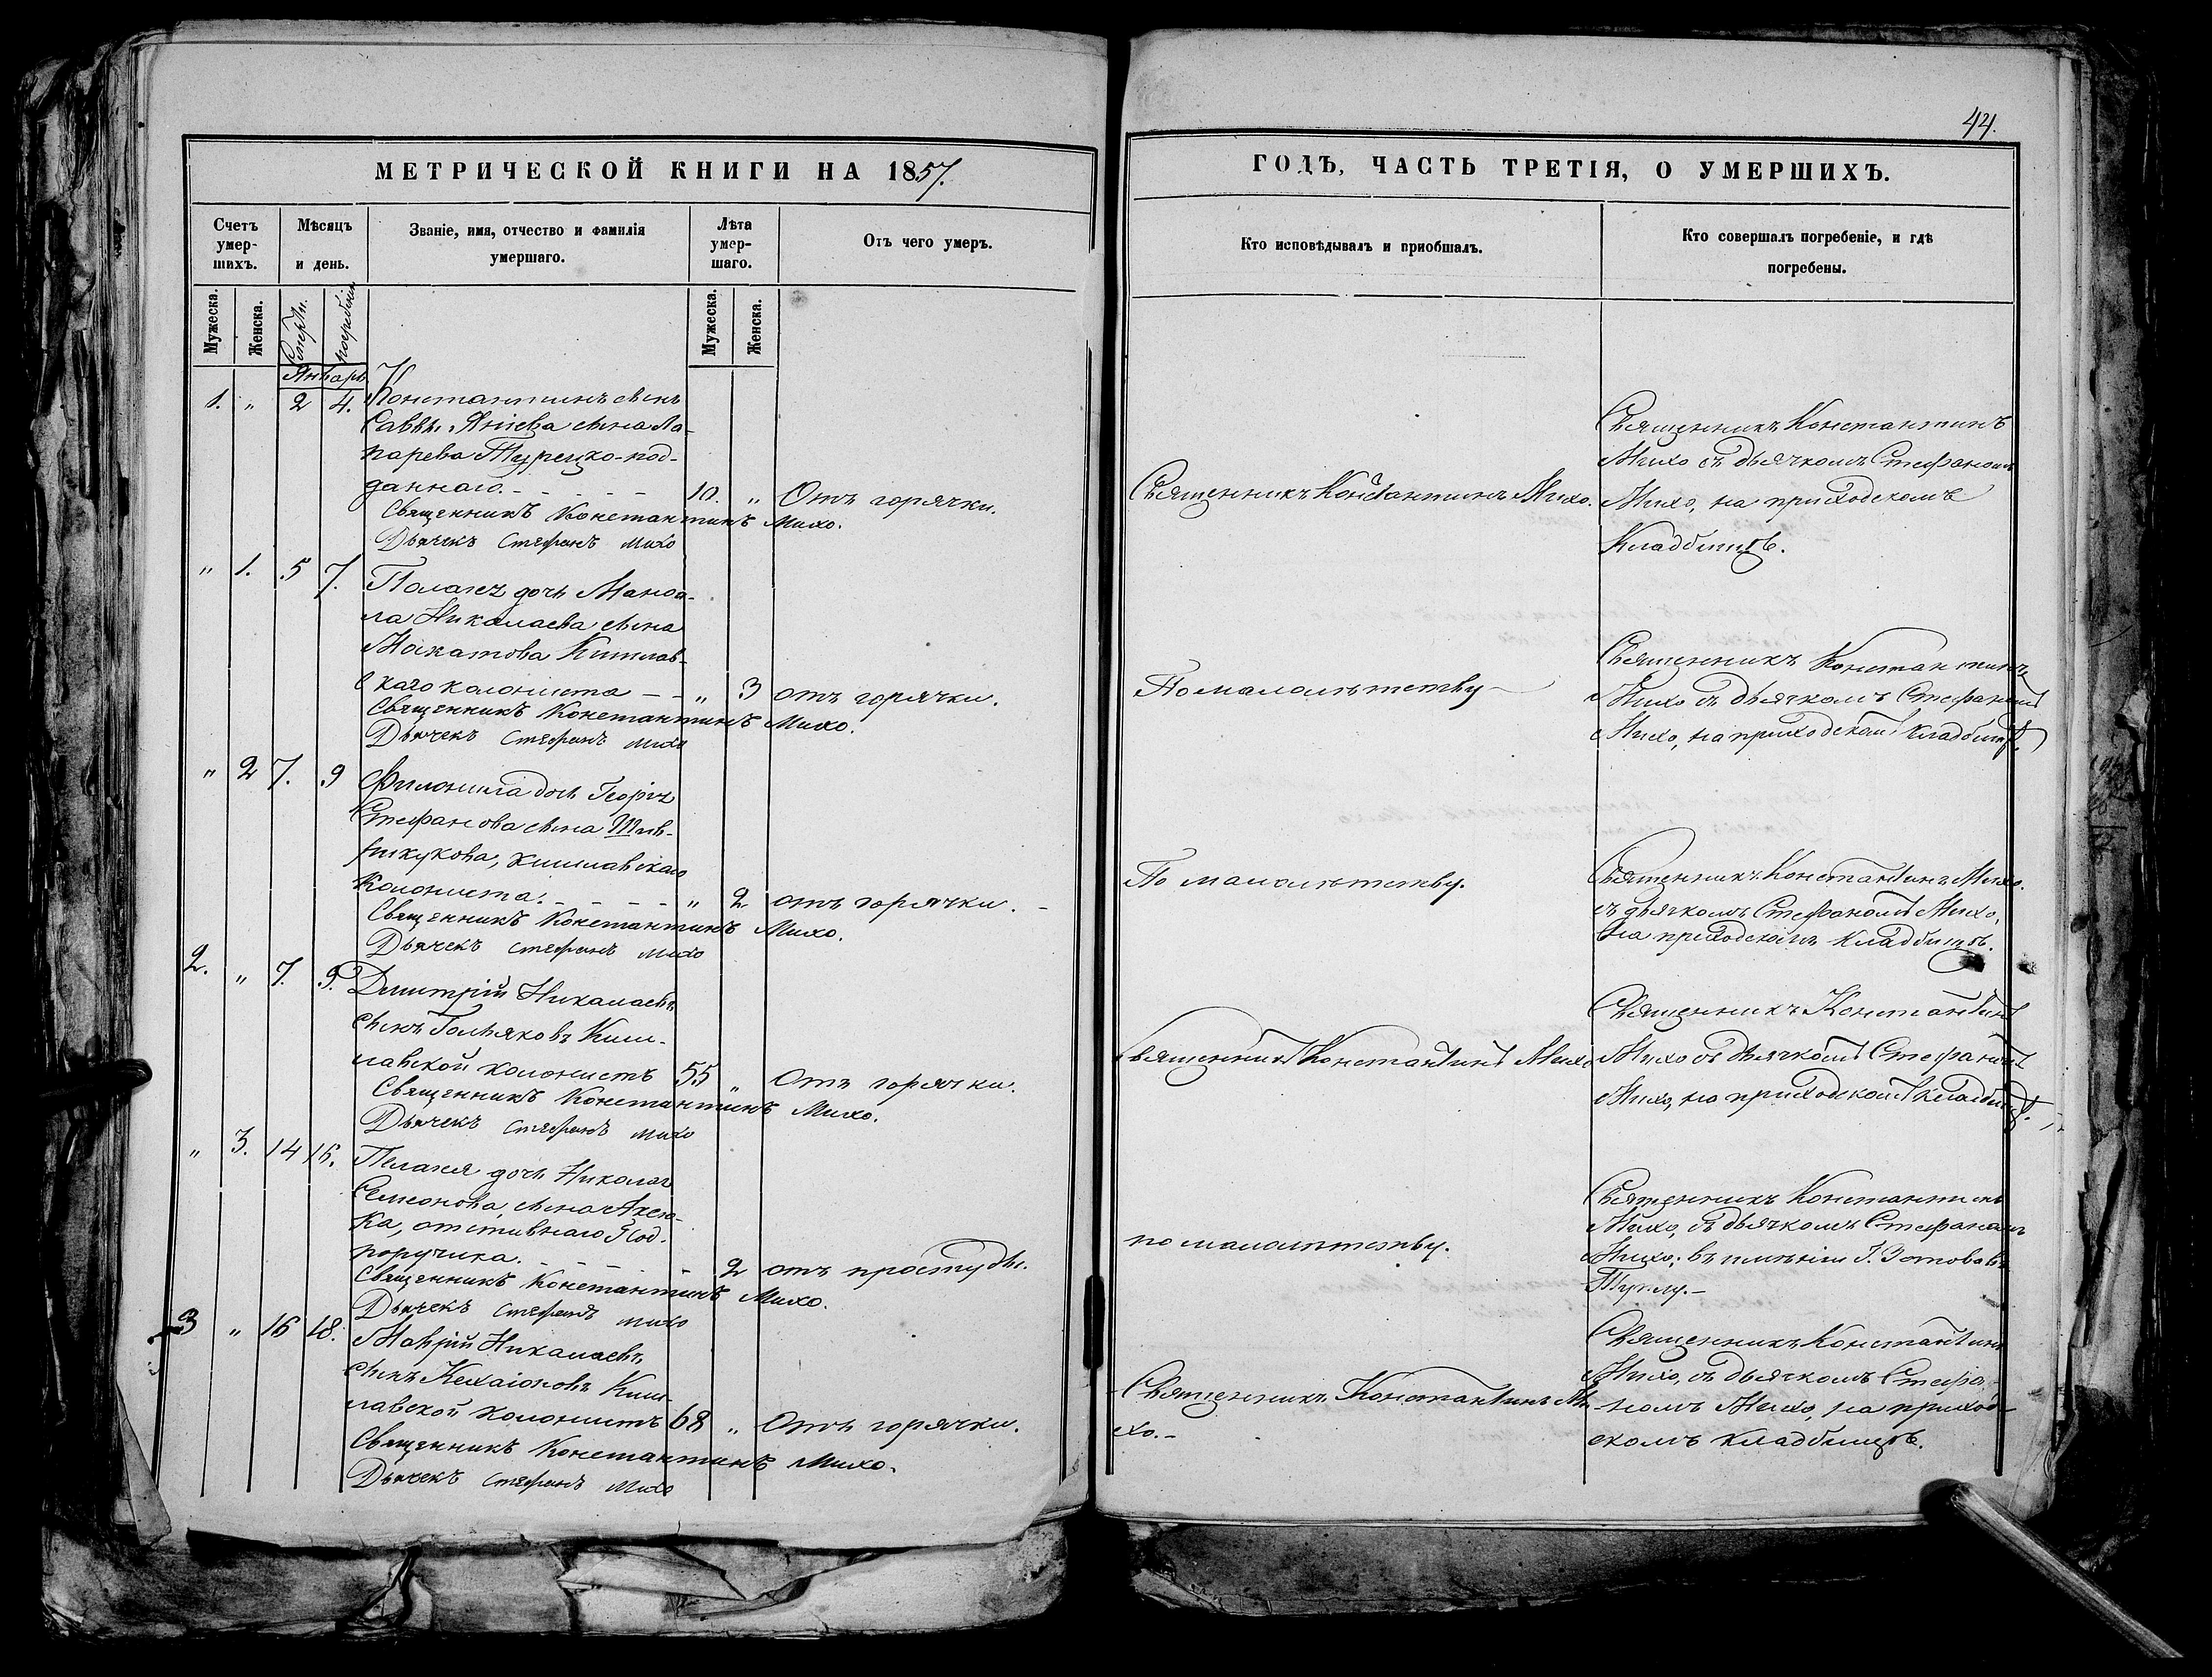 44.
МЕТРИЧЕСКОЙ КНИГИ НА 1857.
ГОДЪ, ЧАСТЬ ТРЕТІЯ, О УМЕРШИХЪ.
Счетъ умер-шихъ.
Мѣсяцъ и день.
Званіе, имя, отчество и фамилія умершаго.
Лѣта умер-шаго.
Отъ чего умеръ.
Кто исповѣдывалъ и пріобщалъ.
Кто совершалъ погребеніе, и гдѣ погребены.
Мужеска. Женска. Смерти. погребенія Мужеска. Женска.
Январь
1. " 2 4. Константинъ сынъ
Саввы Яніева сына Ла-
парева Турецко-под-
даннаго. 10. " Отъ горячки.
Священникъ Константинъ Михо.
Дьячекъ Стефанъ Михо
Священникъ Константинъ Михо.
Священникъ Константинъ
Михо съ дьячкомъ Стефаномъ
Михо, на приходскомъ
Кладбищѣ.
" 1. 5 7. дочь Маноа-
ла Николаева сына
Кишлав-
скаго колониста " 3 отъ горячки.
Священникъ Константинъ Михо.
Дьячекъ Стефанъ Михо
По малолѣтству
Священникъ Константинъ
Михо съ дьячкомъ Стефаномъ
Михо, на приходскомъ кладбищѣ.
" 2 7. 9 дочь
Стефанова сына
кишлавскаго
колониста. " 2 отъ горячки.
Священникъ Константинъ Михо.
Дьячекъ Стефанъ Михо
По малолѣтству.
Священникъ Константинъ Михо.
съ дьячкомъ Стефаномъ Михо,
на приходскомъ кладбищѣ.
2. " 7. 9. Дмитрій Николаевъ
сынъ Киш-
лавской колонистъ 55 " Отъ горячки.
Священникъ Константинъ Михо.
Дьячекъ Стефанъ Михо
Священникъ Константинъ Михо
Священникъ Константинъ
Михо съ дьячкомъ Стефаномъ
Михо, на приходскомъ кладбищѣ.
" 3. 14 16. Пелагея дочь Николая
Семенова, сына
отставнаго Под-
поручика. 2 отъ простуды.
Священникъ Константинъ Михо.
Дьячекъ Стефанъ Михо
по малолѣтству.
Священникъ Константинъ
Михо, съ дьячкомъ Стефаномъ
Михо; въ имѣніи Г. Зотова въ
3 " 16 18. Николаевъ
сынъ Киш-
лавской колонистъ 68 " Отъ горячки.
Священникъ Константинъ Михо.
Дьячекъ Стефанъ Михо
Священникъ Константинъ Ми-
хо.
Священникъ Константинъ
Михо, съ дьячкомъ Стефа-
номъ Михо, на приход-
скомъ кладбищѣ.